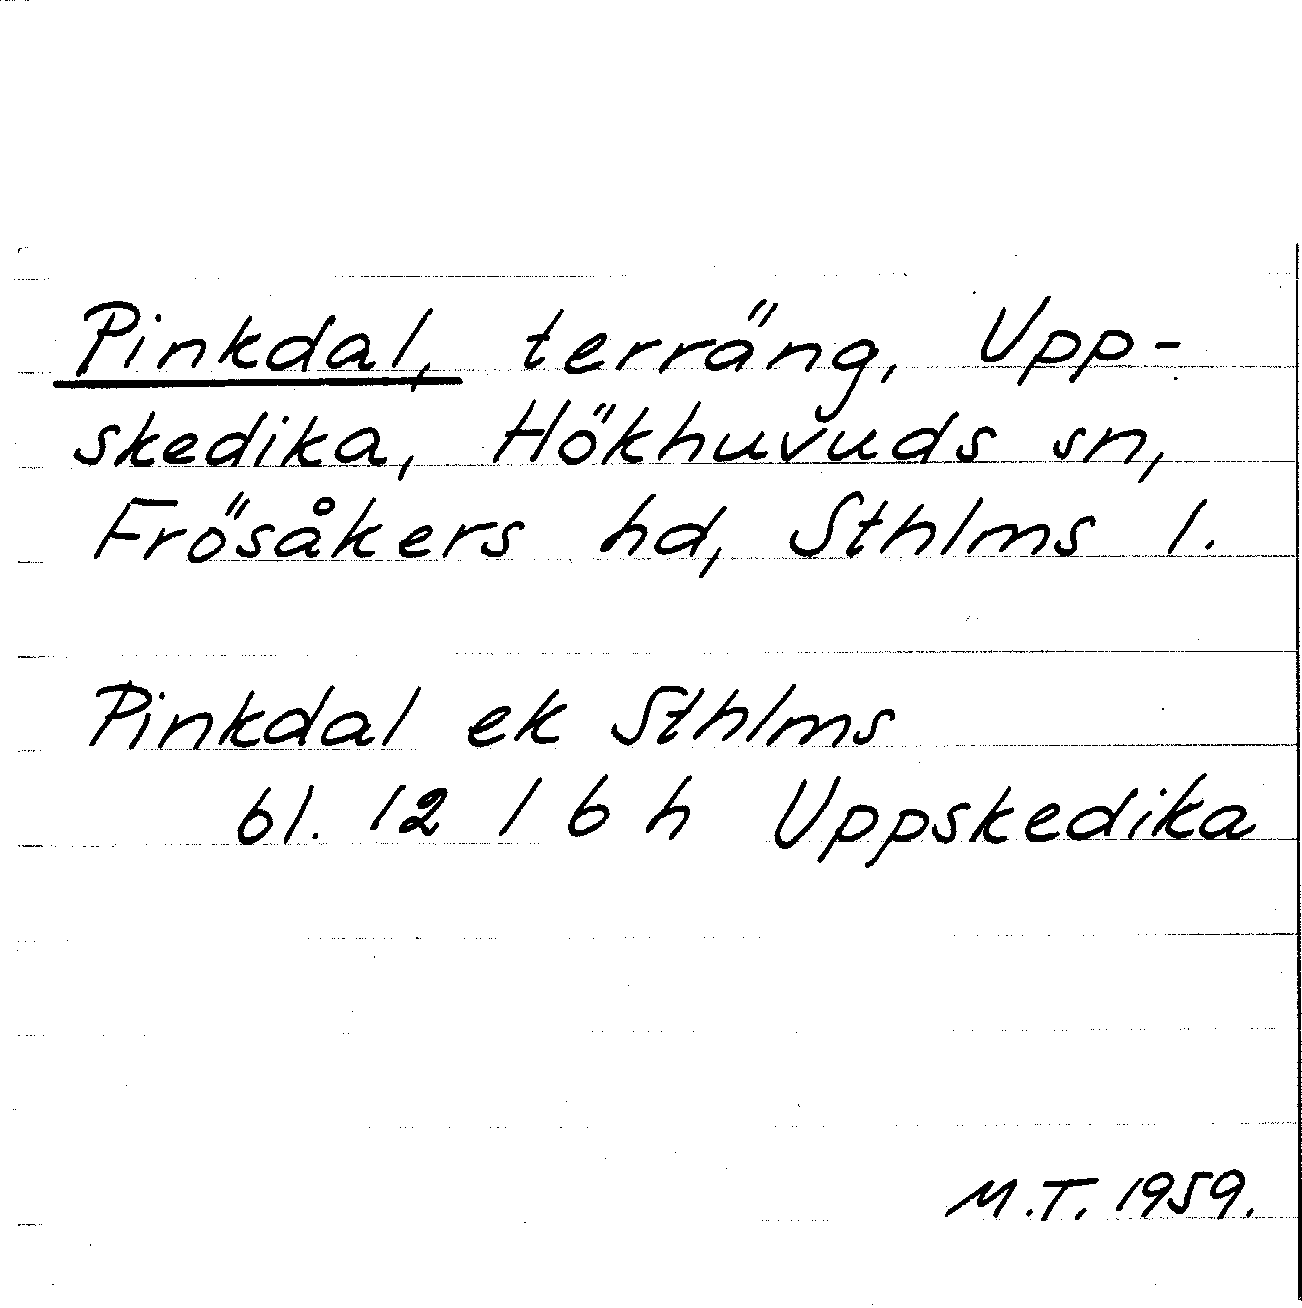 Pinkdal, terräng, Upp-
skedika, Hökhuvuds sn,
Frösåkers hd, Sthlms l.
Pinkdal ek Sthlms
bl. 12 I 6 h Uppskedika
M.T. 1959.